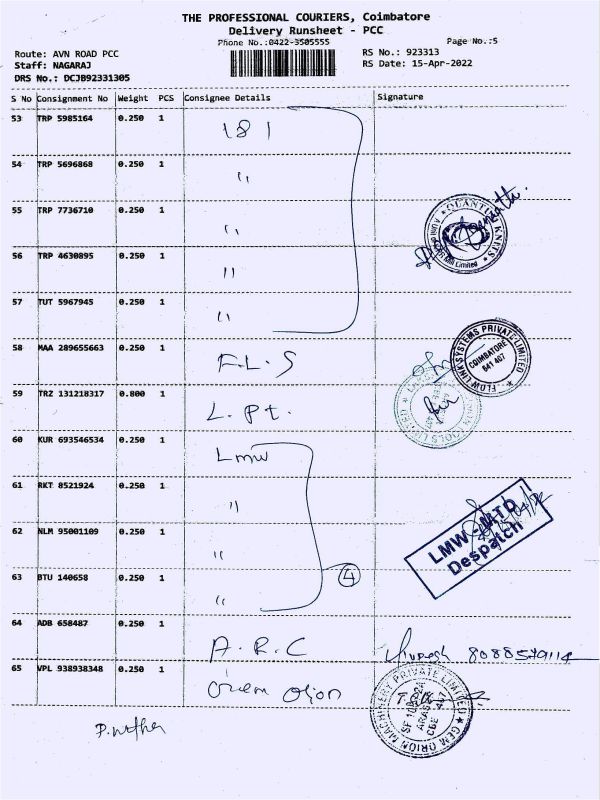 THE PROFESSIONAL COURIERS, Coimbatore
Delivery Runsheet - PCC
Phone No.:0422-3505555 Page No.:5
Route: AVN ROAD PCC RS No.: 923313
Staff: NAGARAJ RS Date: 15-Apr-2022
DRS No.: DCJB92331305
S No Consignment No Weight PCS Consignee Details Signature
53 TRP 5985164 0.250 1 181
54 TRP 5696868 0.250 1 "
55 TRP 7736710 0.250 1 "
QUANTUM KNITS
56 TRP 4630895 0.250 1 "
57 TUT 5967945 0.250 1 "
58 MAA 289655663 0.250 1 F.L.S
FLOW LINK SYSTEMS PRIVATE LIMITED
COIMBATORE
641 407
59 TRZ 131218317 0.800 1 L. Pt.
60 KUR 693546534 0.250 1 Lmw
61 RKT 8521924 0.250 1 "
62 NLM 95001109 0.250 1 "
LMW - MTD
Despatch
63 BTU 140658 0.250 1 " 4
64 ADB 658487 0.250 1 A.R.C
65 VPL 938938348 0.250 1
GEM ORION MACHINERY PRIVATE LIMITED